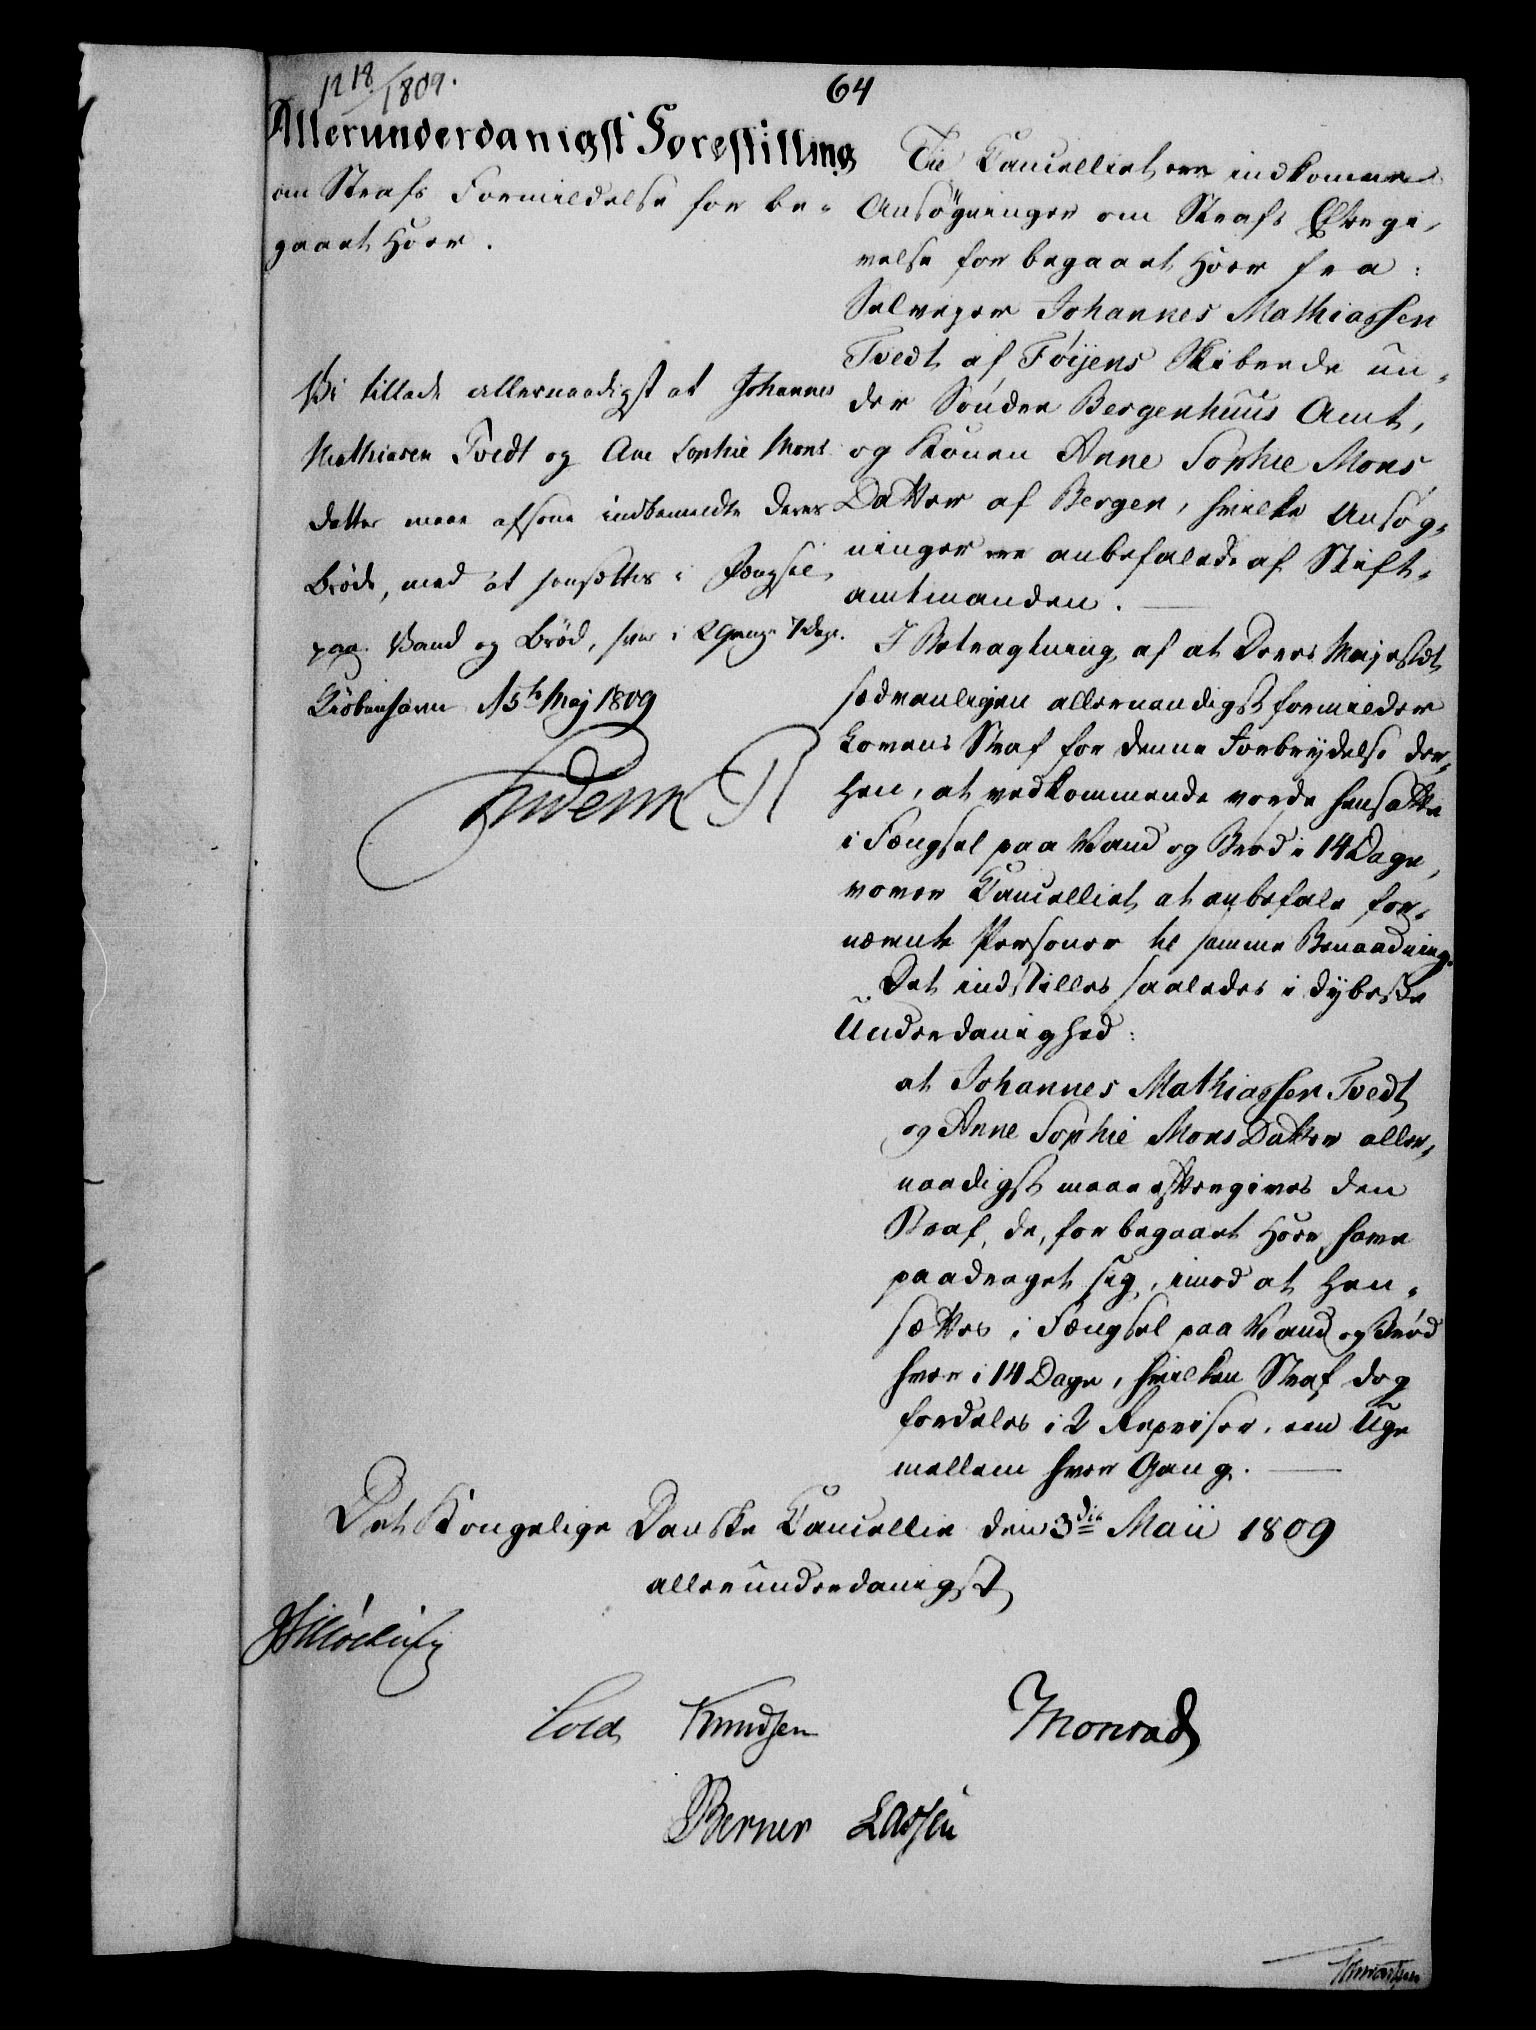 1218/1809.
64
Allerunderdanigst Forestilling
om Strafs Formildelse for be-
gaaet Hoer.
Vi tillade allernaadigst at Johannes
Mathiesen Tvedt og Ane Sophie Mons
datter maae afsone indbemeldte deres
Bröde, med at hensættes i Fængsel
paa Vand og Bröd, hver i 2 Gange 7 Dage.
Kiöbenhavn d 5te Maj 1809
Friderik R
Til Cancelliet ere indkomne
Ansøgninger om Strafs Eftergi-
velse for begaaet Hoer fra:
Selveyer Johannes Mathiassen
Tvedt af Föÿens Skibrede un-
der Sönder Bergenhuus Amt,
og Konen Anne Sophie Mons
Datter af Bergen, hvilke Ansøg-
ninger ere anbefalede af Stift-
amtmanden.
I Betragtning af at Deres Majestæt
sædvanligen allernaadigst formilder
Lovens Straf for denne Forbrydelse der-
hen, at vedkommende vorde hensatte
i Fængsel paa Vand og Brød i 14 Dage,
vover Cancelliet at anbefale for-
nævnte Personer til samme Benaadning.
Det indstilles saaledes i dybeste
Underdanighed:
at Johannes Mathiassen Tvedt
og Anne Sophie Mons Datter aller-
naadigst maae eftergives den
Straf, de, for begaaet Hoer, have
paadraget sig, imod at hen-
sættes i Fængsel paa Vand og Brød
hver i 14 Dage, hvilken Straf dog
fordeles i 2 Repriser, een Uge
mellem hver Gang.
Det Kongelige Danske Cancellie den 3die Maii 1809
allerunderdanigst
Cold Knudsen Monrad
Berner Lassen